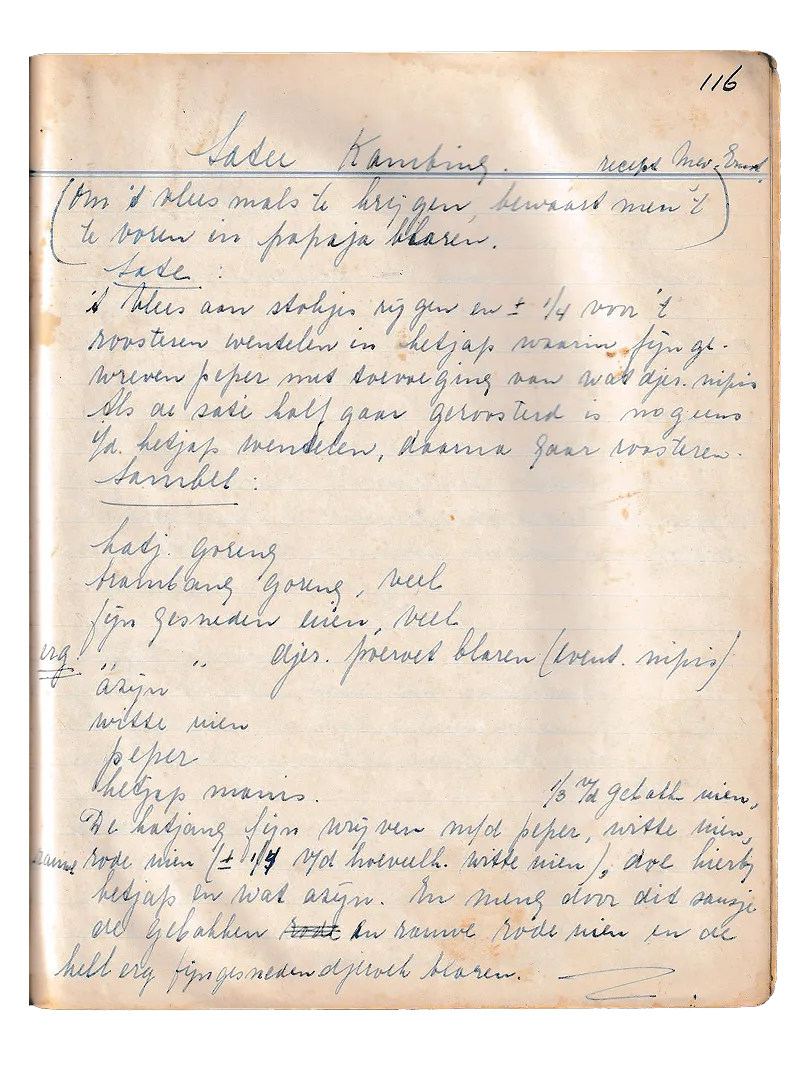 116
Satee Kambing. recept Mev. Ernst.
(Om 't vlees mals te krijgen, bewaart men 't
te voren in papaja blaren.)
Sate :
't Vlees aan stokjes rijgen en ± 1/4 voor 't
roosteren wentelen in ketjap waarin fijn ge-
wreven peper met toevoeging van wat djer. nipis
Als de sate half gaar geroosterd is nog eens
i/d. ketjap wentelen, daarna gaar roosteren.
Sambel :
katj. goreng
brambang goreng, veel
fijn gesneden uien, veel
erg „ „ djer. poeroet blaren (event. nipis)
azijn
witte uien
peper
ketjap manis. 1/3 v/d gebakk uien,
De katjang fijn wrijven m/d peper, witte uien,
rauwe rode uien (± 1/4 v/d hoeveelh. witte uien), doe hierbij
ketjap en wat azijn. En meng door dit sausje
de gebakken rode en rauwe rode uien en de
heel erg fijngesneden djeroek blaren.